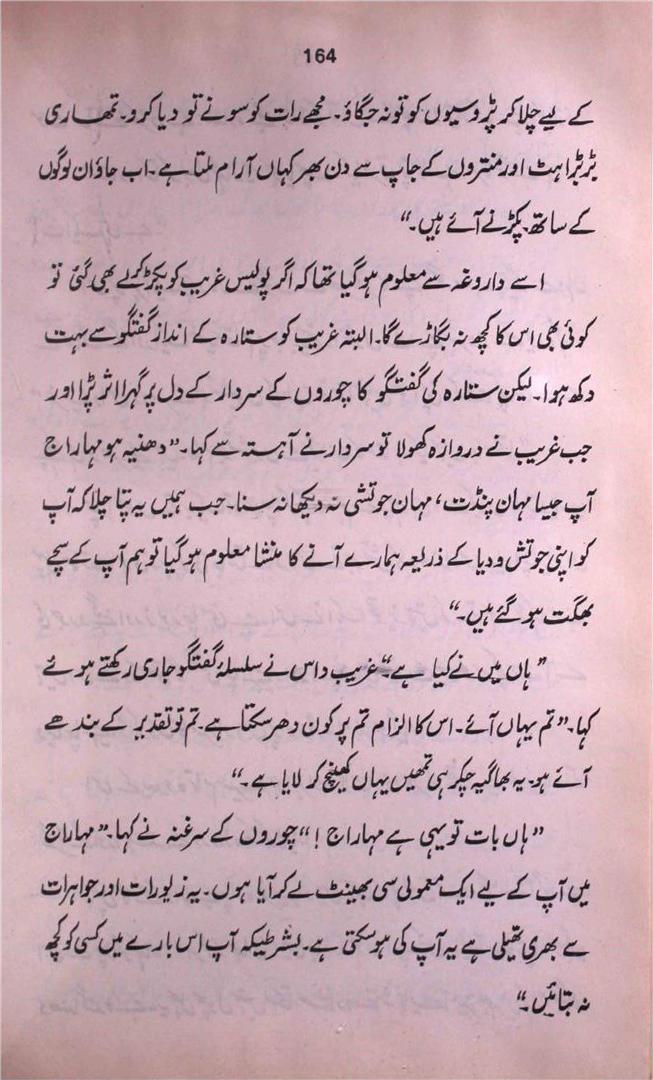 164
کے لیے چلا کر پڑوسیوں کو تو نہ جگاؤ۔ مجھے رات کو سونے تو دیا کرو۔ تمھاری
بڑبڑاہٹ اور منتروں کے جاپ سے دن بھر کہاں آرام ملتا ہے۔ اب جاؤ ان لوگوں
کے ساتھ پکڑنے آئے ہیں۔“
اسے داروغہ سے معلوم ہو گیا تھا کہ اگر پولیس غریب کو پکڑ کر لے بھی گئی تو
کوئی بھی اس کا کچھ نہ بگاڑے گا۔ البتہ غریب کو ستارہ کے انداز گفتگو سے بہت
دکھ ہوا۔ لیکن ستارہ کی گفتگو کا چوروں کے سردار کے دل پر گہرا اثر پڑا اور
جب غریب نے دروازہ کھولا تو سردار نے آہستہ سے کہا۔ ”دھنیہ ہو مہاراج
آپ جیسا مہان پنڈت، مہان جوتشی نہ دیکھا نہ سنا۔ جب ہمیں یہ پتا چلا کہ آپ
کو اپنی جوتش ودیا کے ذریعہ ہمارے آنے کا منشا معلوم ہو گیا تو ہم آپ کے سچے
بھگت ہو گئے ہیں۔“
”ہاں میں نے کیا ہے“ غریب داس نے سلسلۂ گفتگو جاری رکھتے ہوئے
کہا۔ ”تم یہاں آئے۔ اس کا الزام تم پر کون دھر سکتا ہے۔ تم تو تقدیر کے بندھے
آئے ہو۔ یہ بھاگیہ چکر ہی تمھیں یہاں کھینچ کر لایا ہے۔“
”ہاں بات تو یہی ہے مہاراج !“ چوروں کے سرغنہ نے کہا۔ ”مہاراج
میں آپ کے لیے ایک معمولی سی بھینٹ لے کر آیا ہوں۔ یہ زیورات اور جواہرات
سے بھری تھیلی ہے یہ آپ کی ہو سکتی ہے۔ بشرطیکہ آپ اس بارے میں کسی کو کچھ
نہ بتائیں۔“